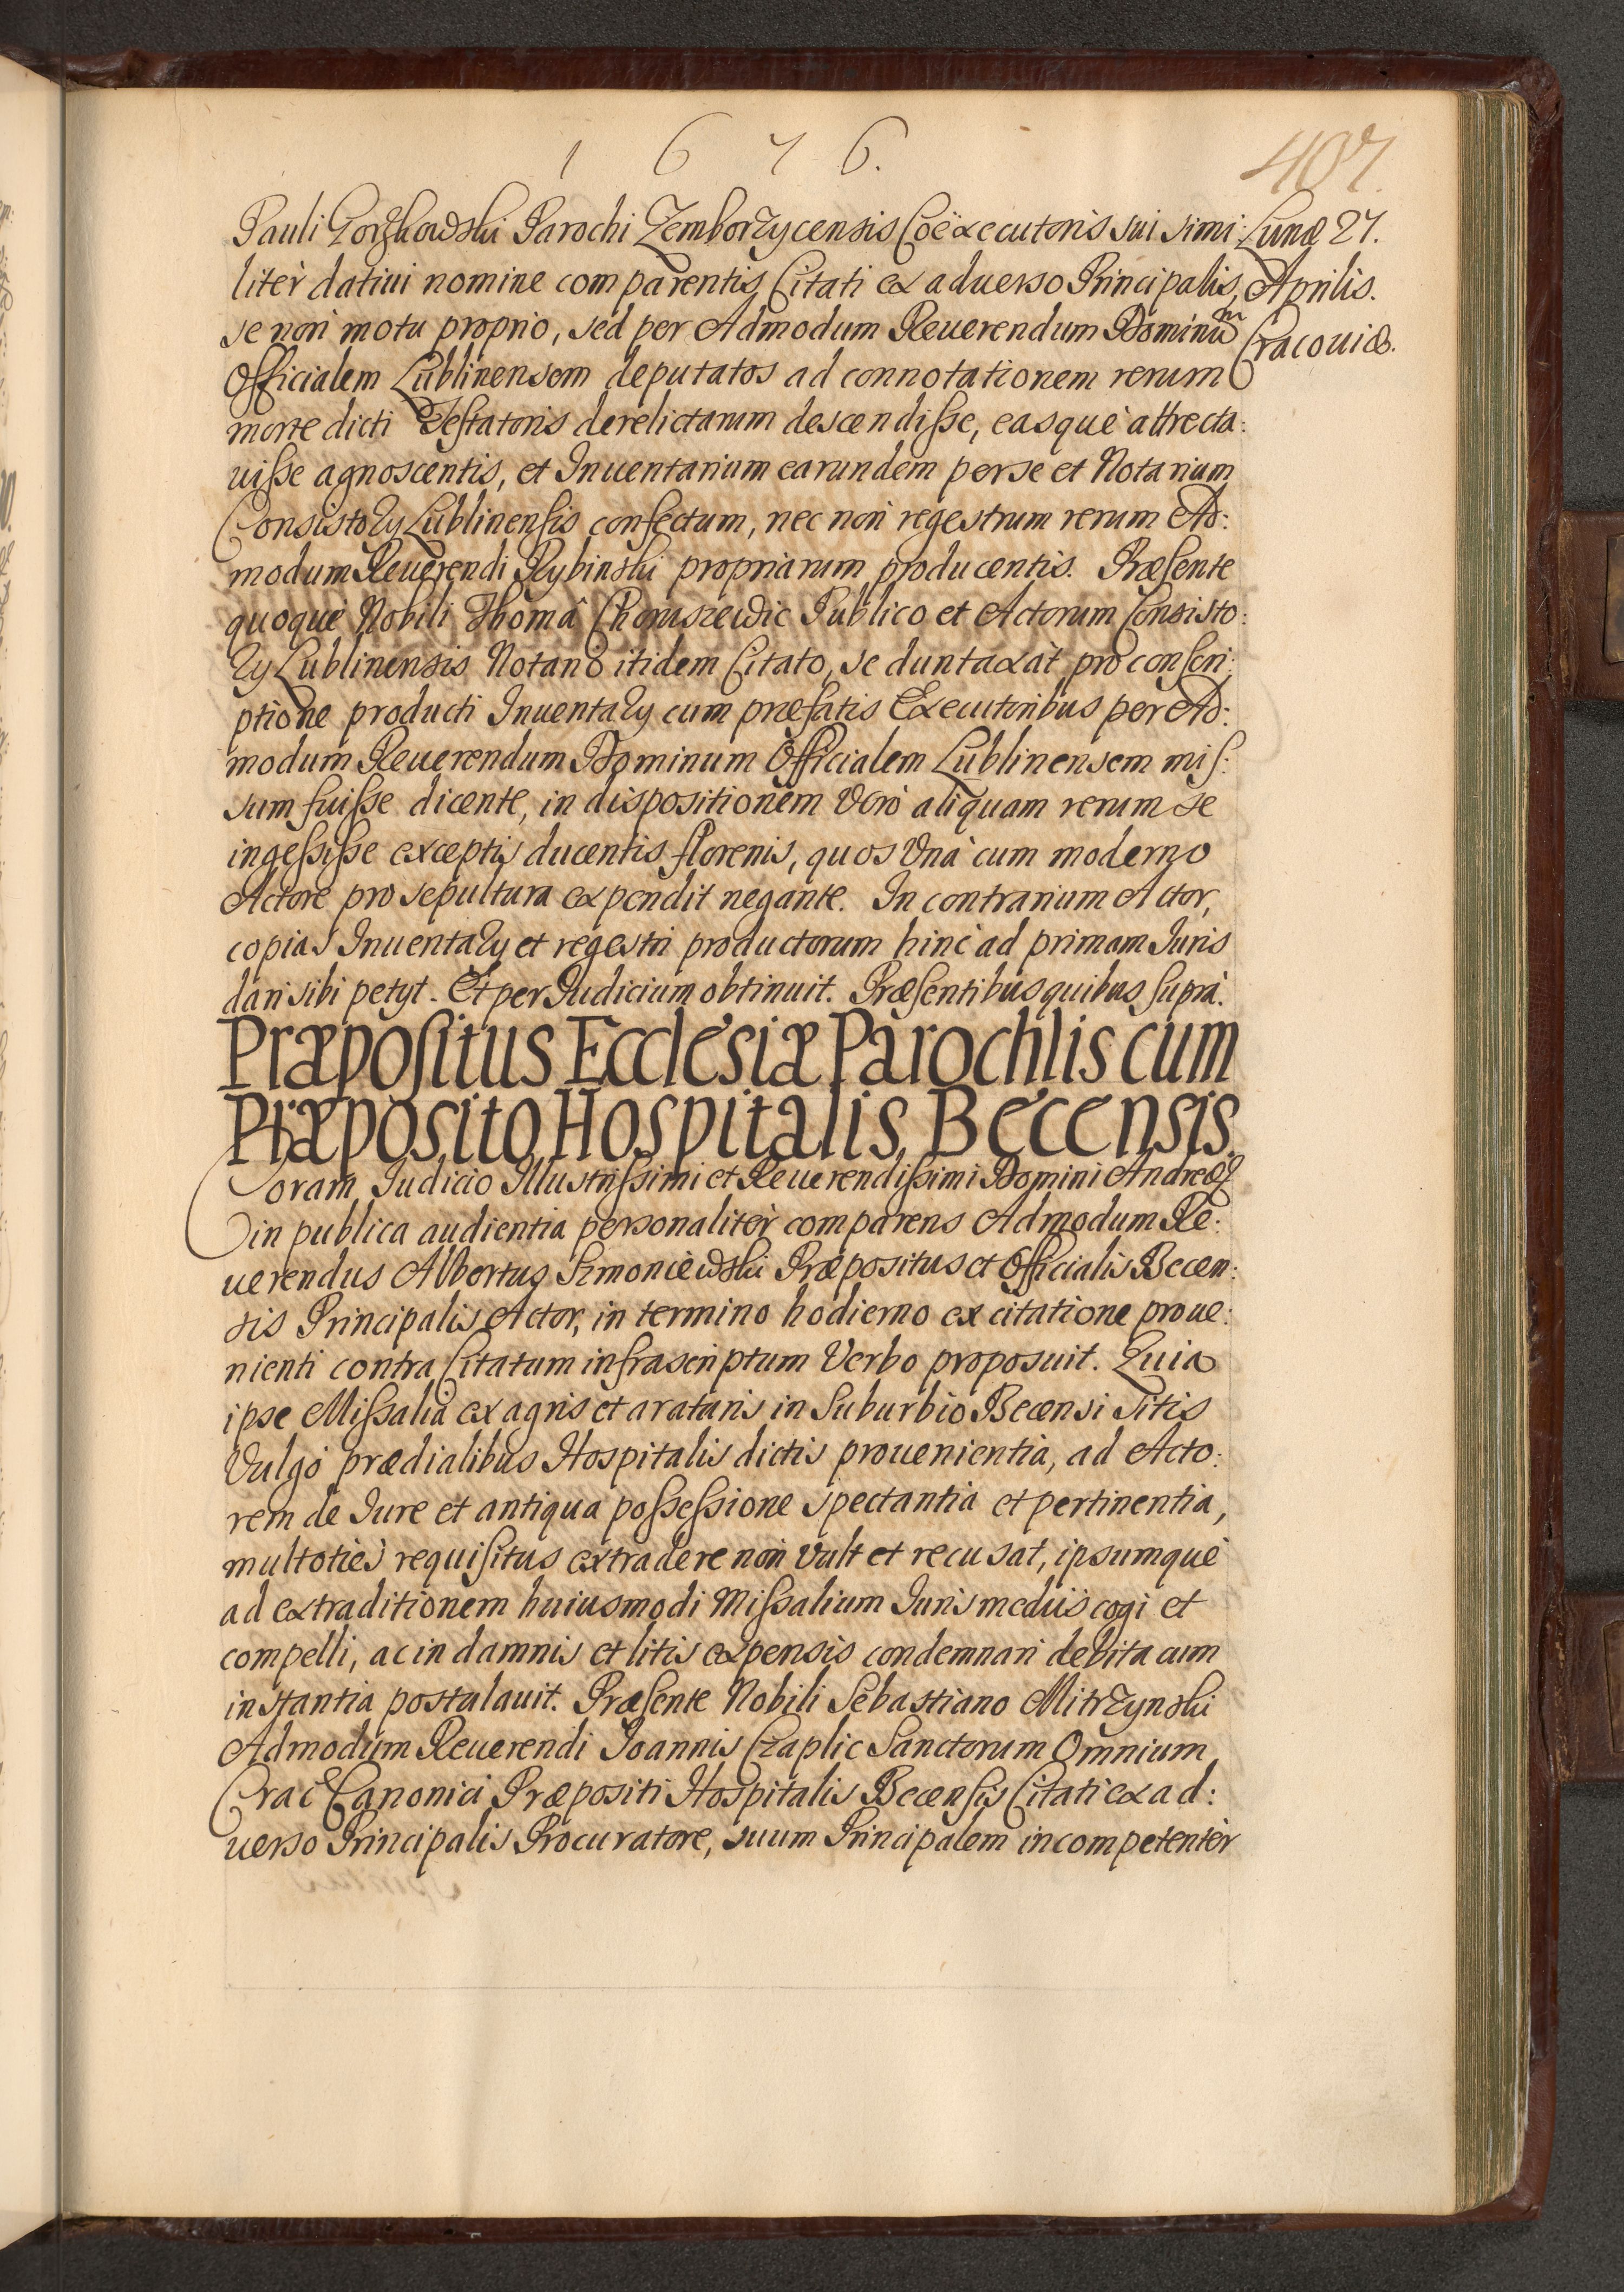 1 6 7 6.
407.
Pauli Gorzkowski Parochi Zemborzycensis Coëxecutoris sui simi:
liter dativi nomine comparentis Citati ex aduerso Principalis,
se non motu proprio, sed per Admodum Reuerendum Dominum
Officialem Lublinensem deputatos ad connotationem rerum
morte dicti Testatoris derelictarum descendisse, easque attrecta:
uisse agnoscentis, et Inuentarium earundem per se et Notarium
Consistorÿ Lublinensis confectum, nec non regestrum rerum Ad:
modum Reuerendi Rybinski propriarum producentis. Præsente
quoque Nobili Thomâ Chomszewic Publico et Actorum Consisto:
rÿ Lublinensis Notario itidem Citato, se duntaxat pro conscri:
ptione producti Inuentarÿ cum præfatis Executoribus per Ad:
modum Reuerendum Dominum Officialem Lublinensem mis:
sum fuisse dicente, in dispositionem vero aliquam rerum se
ingessisse exceptis ducentis florenis, quos vna cum moderno
Actore pro sepultura expendit negante. In contrarium Actor,
copias Inuentarÿ et regestri productorum hinc ad primam Iuris
dari sibi petÿt. Et per Iudicium obtinuit. Præsentibus quibus supra.
Præpositus Ecclesiæ Parochlis cum
Præposito Hospitalis Becensis.
Coram Iudicio Illustrissimi et Reuerendissimi Domini Andreæ &
in publica audientia personaliter comparens Admodum Re:
uerendus Albertus Szmoniewski Præpositus et Officialis Becen:
sis Principalis Actor, in termino hodierno ex citatione proue:
nienti contra Citatum infrascriptum Verbo proposuit. Quia
ipse Missalia ex agris et arataris in Suburbio Becensi sitis
Vulgo prædialibus Hospitalis dictis prouenientia, ad Acto:
rem de Iure et antiqua possessione spectantia et pertinentia,
multoties requisitus extradere non vult et recusat, ipsumque
ad extraditionem huiusmodi Missalium Iuris medijs cogi et
compelli, ac in damnis et litis expensis condemnari debita cum
instantia postulauit. Præsente Nobili Sebastiano Mitrzynski
Admodum Reuerendi Joannis Czaplic Sanctorum Omnium
Crac Canonici Præpositi Hospitalis Becensis Citati ex ad:
uerso Principalis Procuratore, suum Principalem incompetenter
Lunæ 27.
Aprilis.
Cracouiæ.